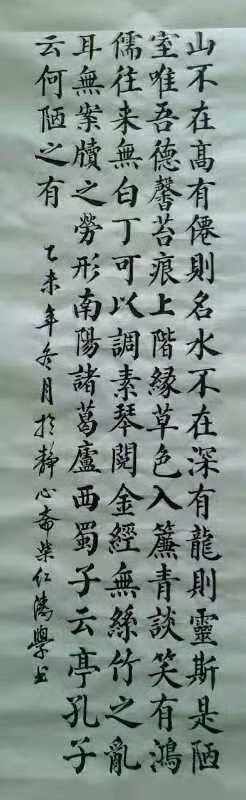 山不在高有僊則名水不在深有龍則靈斯是陋
室唯吾德馨苔痕上階緑草色入簾青談笑有鴻
儒往来無白丁可以調素琴閱金經無絲竹之亂
耳無案牘之勞形南陽諸葛廬西蜀子云亭孔子
云何陋之有 乙未年冬月於静心斋柴仁濤學书